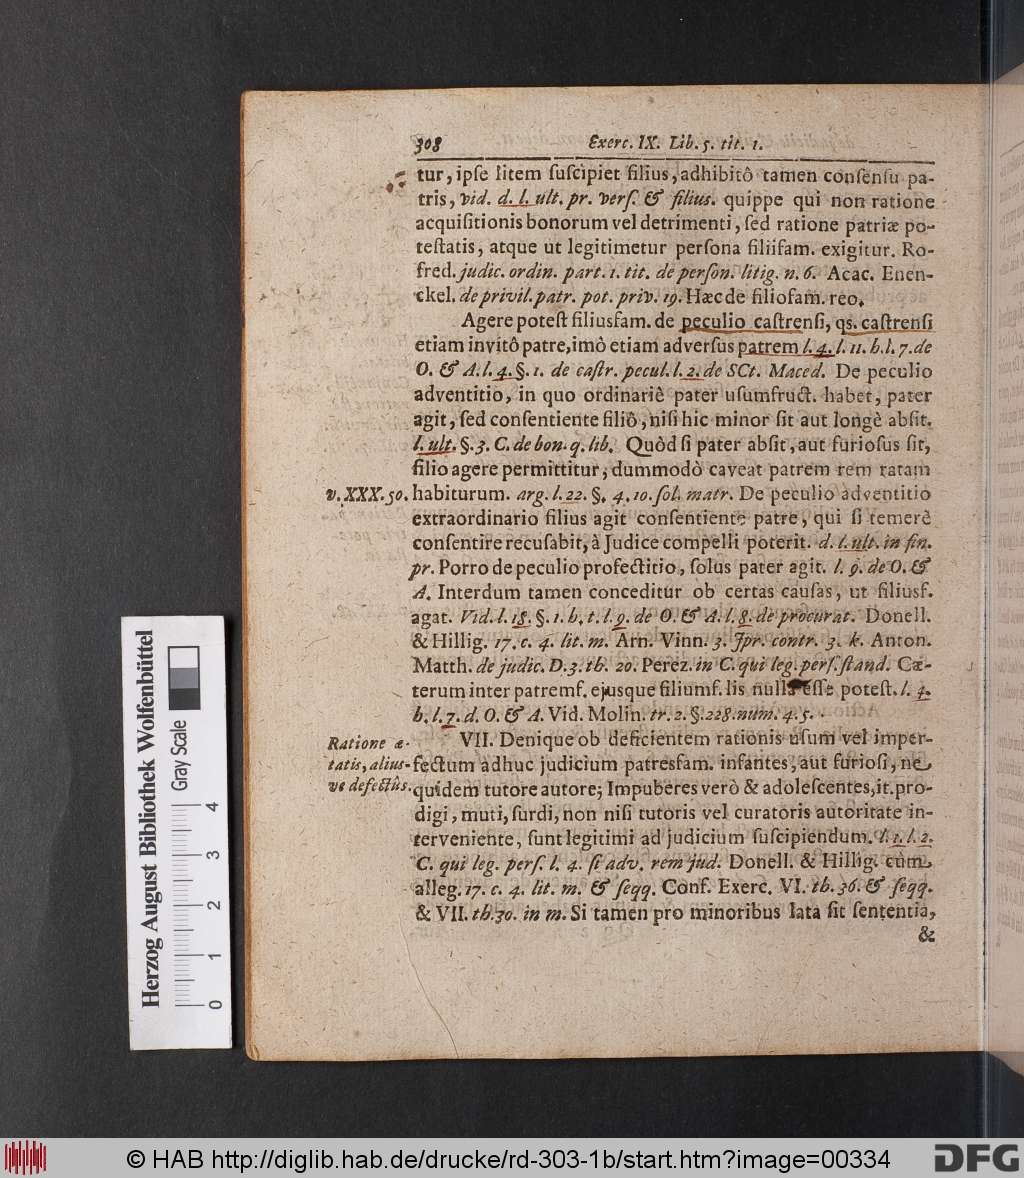 308 Exerc. IX. Lib. 5. tit. 1.
tur, ipſe litem ſuſcipiet filius, adhibitô tamen conſenſu pa-
tris, vid. d. l. ult. pr. verſ. & filius. quippe qui non ratione
acquiſitionis bonorum vel detrimenti, ſed ratione patriæ po-
teſtatis, atque ut legitimetur perſona filiifam. exigitur. Ro-
fred. judic. ordin. part. 1. tit. de perſon. litig. n. 6. Acac. Enen-
ckel. de privil. patr. pot. priv. 19. Hæc de filiofam. reo.
Agere poteſt filiusfam. de peculio caſtrenſi, qs. caſtrenſi
etiam invitô patre, imò etiam adverſus patrem l. 4. l. 11. h. l. 7. de
O. & A. l. 4. §. 1. de caſtr. pecul. l. 2. de SCt. Maced. De peculio
adventitio, in quo ordinariè pater uſumfruct. habet, pater
agit, ſed conſentiente filiô, niſi hic minor ſit aut longè abſit.
l. ult. §. 3. C. de bon. q. lib. Quòd ſi pater abſit, aut furioſus ſit,
filio agere permittitur, dummodò caveat patrem rem ratam
v. XXX. 50. habiturum. arg. l. 22. §. 4. 10. ſol. matr. De peculio adventitio
extraordinario filius agit conſentiente patre, qui ſi temerè
conſentire recuſabit, à Judice compelli poterit. d. l. ult. in fin.
pr. Porro de peculio profectitio, ſolus pater agit. l. 9. de O. &
A. Interdum tamen conceditur ob certas cauſas, ut filiusf.
agat. Vid. l. 18. §. 1. h. t. l. 9. de O. & A. l. 8. de procurat. Donell.
& Hillig. 17. c. 4. lit. m. Arn. Vinn. 3. Jpr. contr. 3. k. Anton.
Matth. de judic. D. 3. th. 20. Perez. in C. qui leg. perſ. ſtand. Cæ-
terum inter patremf. ejusque filiumf. lis nulla eſſe poteſt. l. 4.
h. l. 7. d. O. & A. Vid. Molin. tr. 2. §. 228. num. 4. 5.
Ratione æ-
tatis, alius-
ve defectûs.
VII. Denique ob deficientem rationis uſum vel imper-
fectum adhuc judicium patresfam. infantes, aut furioſi, ne
quidem tutore autore; Impuberes verò & adoleſcentes, it. pro-
digi, muti, ſurdi, non niſi tutoris vel curatoris autoritate in-
terveniente, ſunt legitimi ad judicium ſuſcipiendum. l. 1. l. 2.
C. qui leg. perſ. l. 4. ſi adv. rem jud. Donell. & Hillig. cum
alleg. 17. c. 4. lit. m. & ſeqq. Conf. Exerc. VI. th. 36. & ſeqq.
& VII. th. 30. in m. Si tamen pro minoribus lata ſit ſententia,
&
Herzog August Bibliothek Wolfenbüttel
Gray Scale
0 1 2 3 4
© HAB http://diglib.hab.de/drucke/rd-303-1b/start.htm?image=00334
DFG